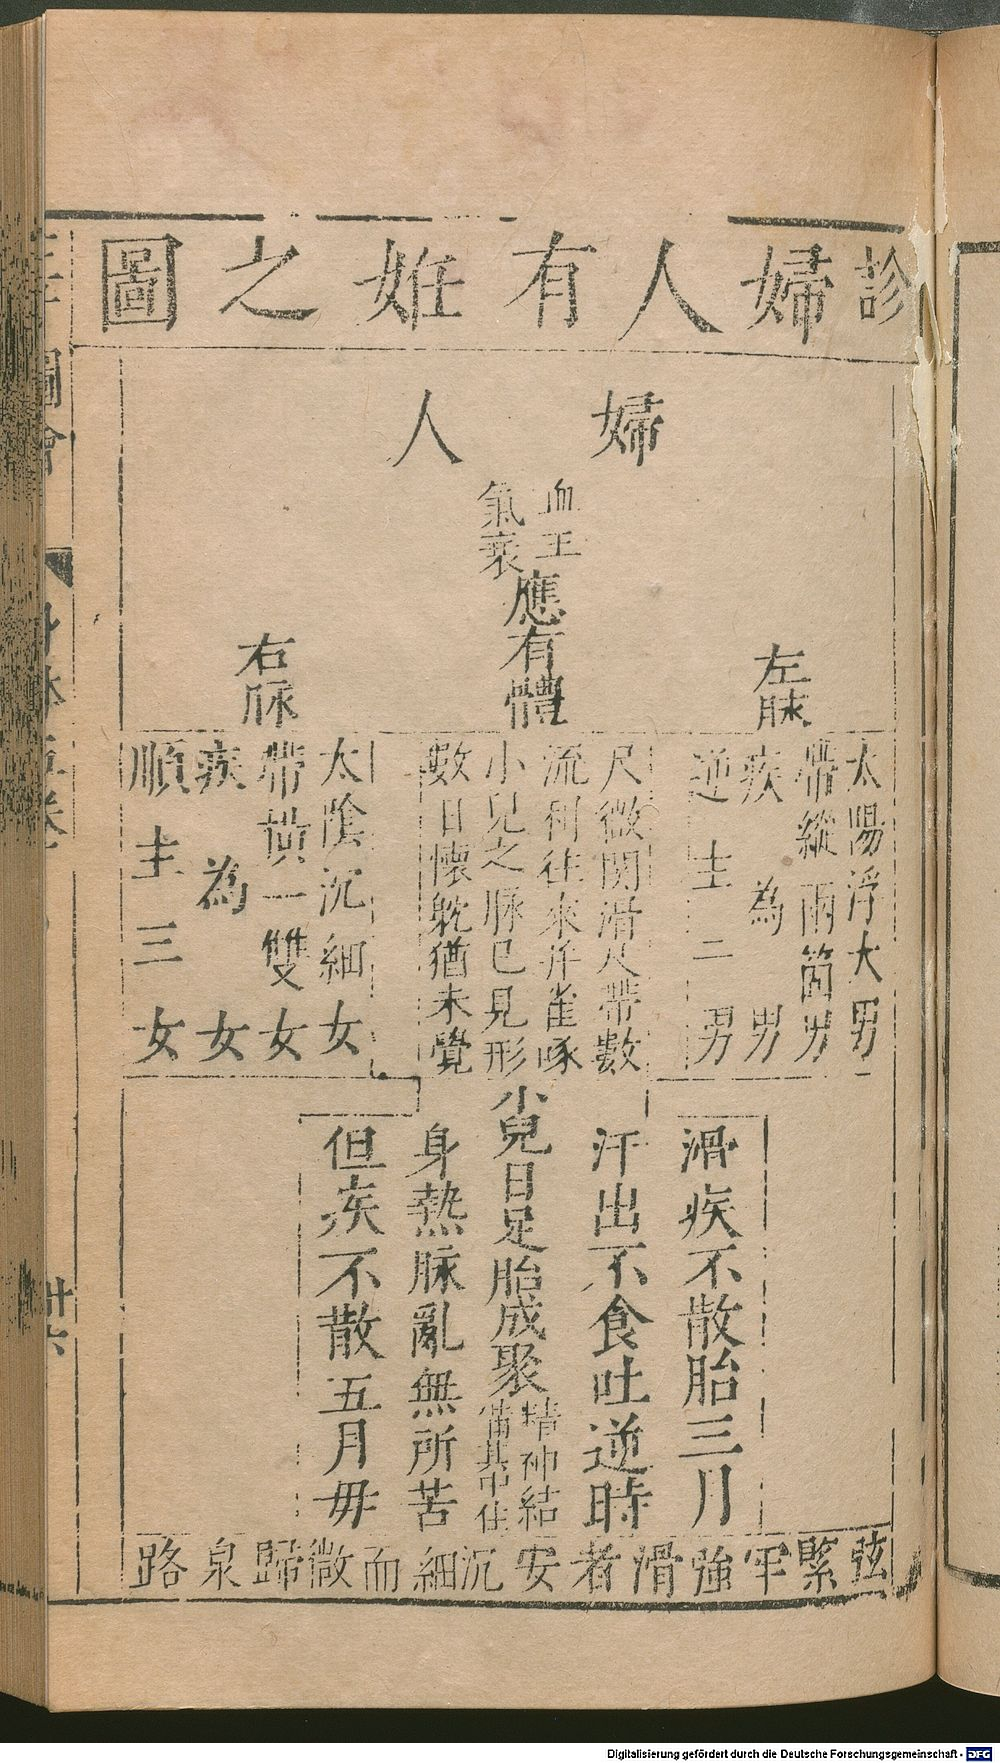 診婦人有姙之圖
婦人
血王
氣衰
應有體
左脉
右脉
太陽浮大男
帶縱兩箇男
疾為男
逆主二男
尺微関滑尺帶數
流利往來并雀啄
小兒之脉已見形
數日懷躭猶未覺
太陰沉細女
帶橫一雙女
疾為女
順主三女
滑疾不散胎三月
汗出不食吐逆時
小兒日足胎成聚
精神結
備其中住
身熱脉亂無所苦
但疾不散五月毋
弦緊牢強滑者安沉細而微歸泉路
圖會
卄六
Digitalisierung gefördert durch die Deutsche Forschungsgemeinschaft - DFG